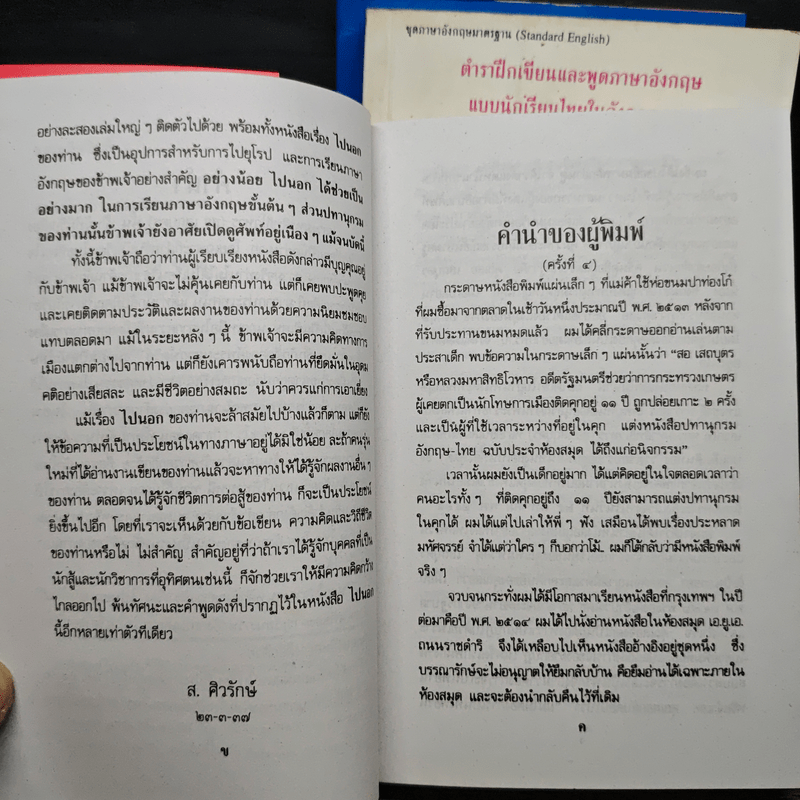 ชุดภาษาอังกฤษมาตรฐาน (Standard English)
ตำราฝึกเขียนและพูดภาษาอังกฤษ
แบบนักเรียนไทยใน
อย่างละสองเล่มใหญ่ ๆ ติดตัวไปด้วย พร้อมทั้งหนังสือเรื่อง ไปนอก
ของท่าน ซึ่งเป็นอุปการสำหรับการไปยุโรป และการเรียนภาษา
อังกฤษของข้าพเจ้าอย่างสำคัญ อย่างน้อย ไปนอก ได้ช่วยเป็น
อย่างมาก ในการเรียนภาษาอังกฤษขั้นต้น ๆ ส่วนปทานุกรม
ของท่านนั้นข้าพเจ้ายังอาศัยเปิดดูศัพท์อยู่เนือง ๆ แม้จนบัดนี้
ทั้งนี้ข้าพเจ้าถือว่าท่านผู้เรียบเรียงหนังสือดังกล่าวมีบุญคุณอยู่
กับข้าพเจ้า แม้ข้าพเจ้าจะไม่คุ้นเคยกับท่าน แต่ก็เคยพบปะพูดคุย
และเคยติดตามประวัติและผลงานของท่านด้วยความนิยมชมชอบ
แทบตลอดมา แม้ในระยะหลัง ๆ นี้ ข้าพเจ้าจะมีความคิดทางการ
เมืองแตกต่างไปจากท่าน แต่ก็ยังเคารพนับถือท่านที่ยึดมั่นในอุดม
คติอย่างเสียสละ และมีชีวิตอย่างสมถะ นับว่าควรแก่การเอาเยี่ยง
แม้เรื่อง ไปนอก ของท่านจะล้าสมัยไปบ้างแล้วก็ตาม แต่ก็ยัง
ให้ข้อความที่เป็นประโยชน์ในทางภาษาอยู่ได้มิใช่น้อย ละถ้าคนรุ่น
ใหม่ที่ได้อ่านงานเขียนของท่านแล้วจะหาทางให้ได้รู้จักผลงานอื่น ๆ
ของท่าน ตลอดจนได้รู้จักชีวิตการต่อสู้ของท่าน ก็จะเป็นประโยชน์
ยิ่งขึ้นไปอีก โดยที่เราจะเห็นด้วยกับข้อเขียน ความคิดและวิถีชีวิต
ของท่านหรือไม่ ไม่สำคัญ สำคัญอยู่ที่ว่าถ้าเราได้รู้จักบุคคลที่เป็น
นักสู้และนักวิชาการที่อุทิศตนเช่นนี้ ก็จักช่วยเราให้มีความคิดกว้าง
ไกลออกไป พ้นทัศนะและคำพูดดังที่ปรากฏไว้ในหนังสือ ไปนอก
นี้อีกหลายเท่าตัวทีเดียว
ส. ศิวรักษ์
๒๓-๓-๓๗
ข
คำนำของผู้พิมพ์
(ครั้งที่ ๔)
กระดาษหนังสือพิมพ์แผ่นเล็ก ๆ ที่แม่ค้าใช้ห่อขนมปาท่องโก๋
ที่ผมซื้อมาจากตลาดในเช้าวันหนึ่งประมาณปี พ.ศ. ๒๕๑๓ หลังจาก
ที่รับประทานขนมหมดแล้ว ผมได้คลี่กระดาษออกอ่านเล่นตาม
ประสาเด็ก พบข้อความในกระดาษเล็ก ๆ แผ่นนั้นว่า “สอ เสถบุตร
หรือหลวงมหาสิทธิโวหาร อดีตรัฐมนตรีช่วยว่าการกระทรวงเกษตร
ผู้เคยตกเป็นนักโทษการเมืองติดคุกอยู่ ๑๑ ปี ถูกปล่อยเกาะ ๒ ครั้ง
และเป็นผู้ที่ใช้เวลาระหว่างที่อยู่ในคุก แต่งหนังสือปทานุกรม
อังกฤษ-ไทย ฉบับประจำห้องสมุด ได้ถึงแก่อนิจกรรม”
เวลานั้นผมยังเป็นเด็กอยู่มาก ได้แต่คิดอยู่ในใจตลอดเวลาว่า
คนอะไรทั้ง ๆ ที่ติดคุกอยู่ถึง ๑๑ ปียังสามารถแต่งปทานุกรม
ในคุกได้ ผมได้แต่ไปเล่าให้พี่ ๆ ฟัง เสมือนได้พบเรื่องประหลาด
มหัศจรรย์ จำได้แต่ว่าใคร ๆ ก็บอกว่าโม้.. ผมก็โต้กลับว่ามีหนังสือพิมพ์
จริง ๆ
จวบจนกระทั่งผมได้มีโอกาสมาเรียนหนังสือที่กรุงเทพฯ ในปี
ต่อมาคือปี พ.ศ. ๒๕๑๔ ผมได้ไปนั่งอ่านหนังสือในห้องสมุด เอ.ยู.เอ.
ถนนราชดำริ จึงได้เหลือบไปเห็นหนังสืออ้างอิงอยู่ชุดหนึ่ง ซึ่ง
บรรณารักษ์จะไม่อนุญาตให้ยืมกลับบ้าน คือยืมอ่านได้เฉพาะภายใน
ห้องสมุด และจะต้องนำกลับคืนไว้ที่เดิม
ค